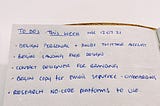 TO DO'S THIS WEEK WK 12.07.21
- DESIGN PERSONAL + BUILD TWITTER ACCOUNT
- BEGIN LANDING PAGE DESIGN
- CONTACT DESIGNERS FOR BRANDING
- BEGIN COPY FOR EMAIL SEQUENCE - ONBOARDING
- RESEARCH NO-CODE PLATFORMS TO USE